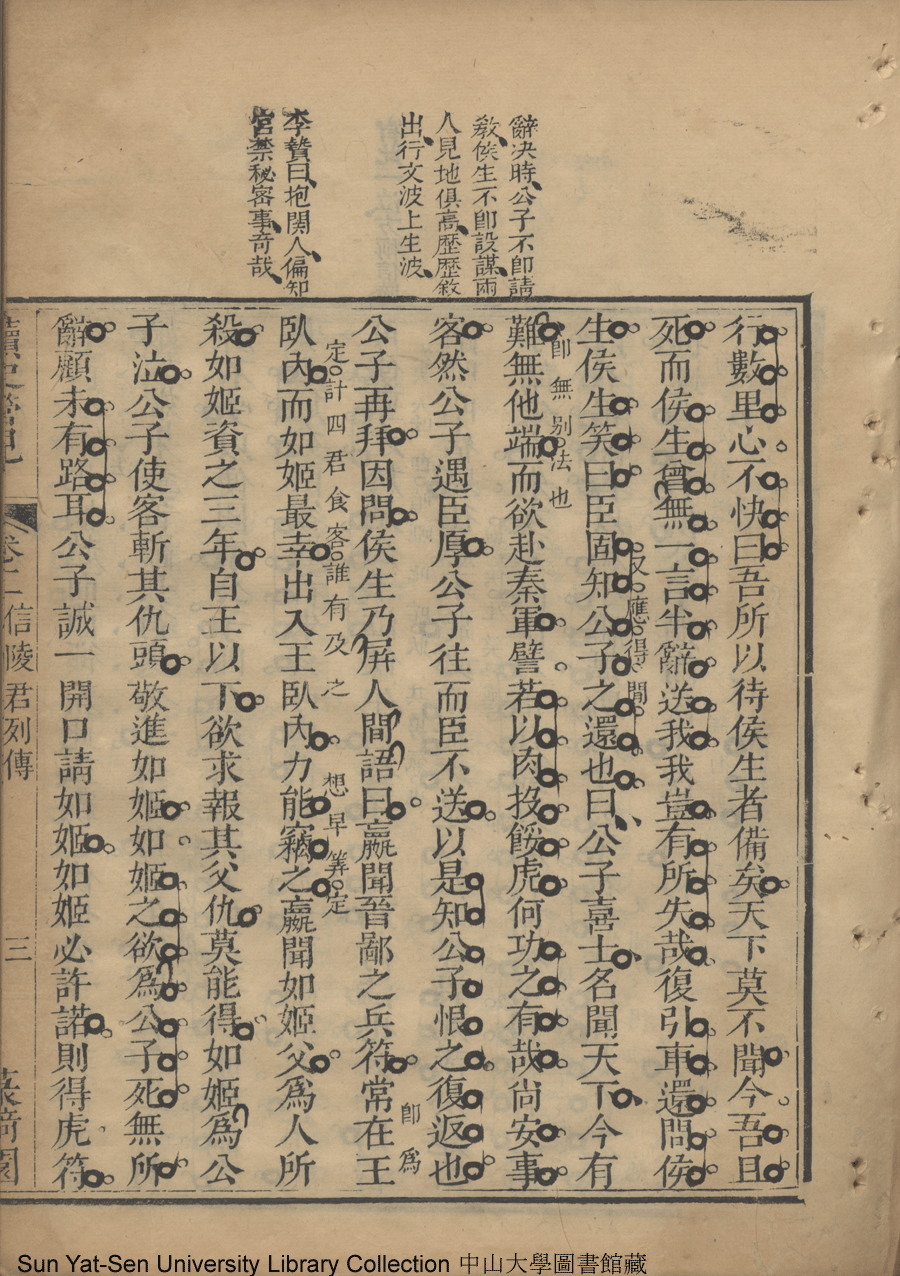 辭決時公子不卽請
教侯生不卽設謀兩
人見地俱高歷歷敘
出行文波上生波
李贄曰抱関人偏知
宫禁秘密事奇哉
行數里心不快曰吾所以待侯生者備矣天下莫不聞今吾且
死而侯生曾無一言半辭送我我豈有所失哉復引車還問侯
又應得閒
生侯生笑曰臣固知公子之還也曰公子喜士名聞天下今有
卽無别法也
難無他端而欲赴秦軍譬若以肉投餒虎何功之有哉尙安事
客然公子遇臣厚公子往而臣不送以是知公子恨之復返也
卽爲
公子再拜因問侯生乃屏人間語曰嬴聞晉鄙之兵符常在王
定計四君食客誰有及之想早筭定
臥內而如姬最幸出入王臥內力能竊之嬴聞如姬父爲人所
殺如姬資之三年自王以下欲求報其父仇莫能得如姬爲公
子泣公子使客斬其仇頭敬進如姬如姬之欲爲公子死無所
辭顧未有路耳公子誠一開口請如姬如姬必許諾則得虎符
卷二信陵君列傳 三
Sun Yat-Sen University Library Collection 中山大學圖書館藏